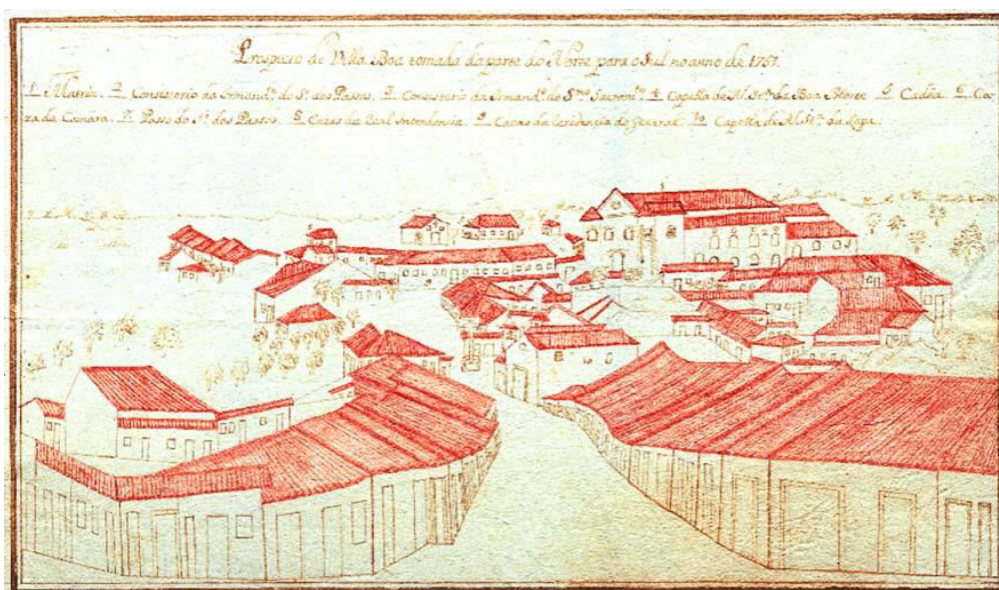 Prospecto de Villa Boa tomada da parte do Norte para o Sul no anno de 1751.
1 Matriz. 2 Consistorio da Irmand.e do S.r dos Passos. 3 Consistorio da Irmand.e do S.mo Sacram.to 4 Capella de N. Sr.a da Boa Morte 5 Cadêa 6 Ca-
za da Camara. 7 Passo do S.r dos Passos. 8 Cazas da Real Intendencia. 9 Cazas da Rezidencia do General. 10 Capella de N. Sr.a da Lapa.